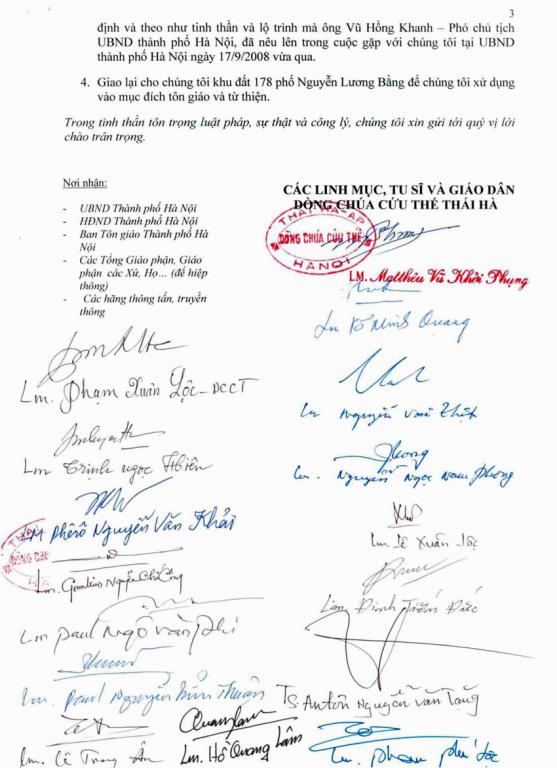 3
định và theo như tinh thần và lộ trình mà ông Vũ Hồng Khanh – Phó chủ tịch
UBND thành phố Hà Nội, đã nêu lên trong cuộc gặp với chúng tôi tại UBND
thành phố Hà Nội ngày 17/9/2008 vừa qua.
4. Giao lại cho chúng tôi khu đất 178 phố Nguyễn Lương Bằng để chúng tôi xử dụng
vào mục đích tôn giáo và từ thiện.
Trong tinh thần tôn trọng luật pháp, sự thật và công lý, chúng tôi xin gửi tới quý vị lời
chào trân trọng.
Nơi nhận:
- UBND Thành phố Hà Nội
- HĐND Thành phố Hà Nội
- Ban Tôn giáo Thành phố Hà
Nội
- Các Tổng Giáo phận, Giáo
phận các Xứ, Họ... (để hiệp
thông)
- Các hãng thông tấn, truyền
thông
CÁC LINH MỤC, TU SĨ VÀ GIÁO DÂN
DÒNG CHÚA CỨU THẾ THÁI HÀ
THAI HA-AP
DÒNG CHÚA CỨU THẾ
HANOI
LM. Matthêu Vũ Khởi Phụng
Lm Võ Minh Quang
Lm. Phạm Xuân Lộc - DCCT
Lm Nguyễn Văn Thật
Lm Trịnh Ngọc Hiên
Lm. Nguyễn Ngọc Nam Phong
LM Phêrô Nguyễn Văn Khải
Lm. Lê Xuân Lộc
DÒNG CHÚA
Lm. Nguyễn
Lm. Đinh Tiến Đức
Lm Paul Ngô Văn Phi
Lm. Paul Nguyễn Hữu Thuần
TS. Antôn Nguyễn Văn Tặng
Lm. Lê Trọng Ân
Lm. Hồ Quang Lâm
Lm. Phạm Phú Lộc